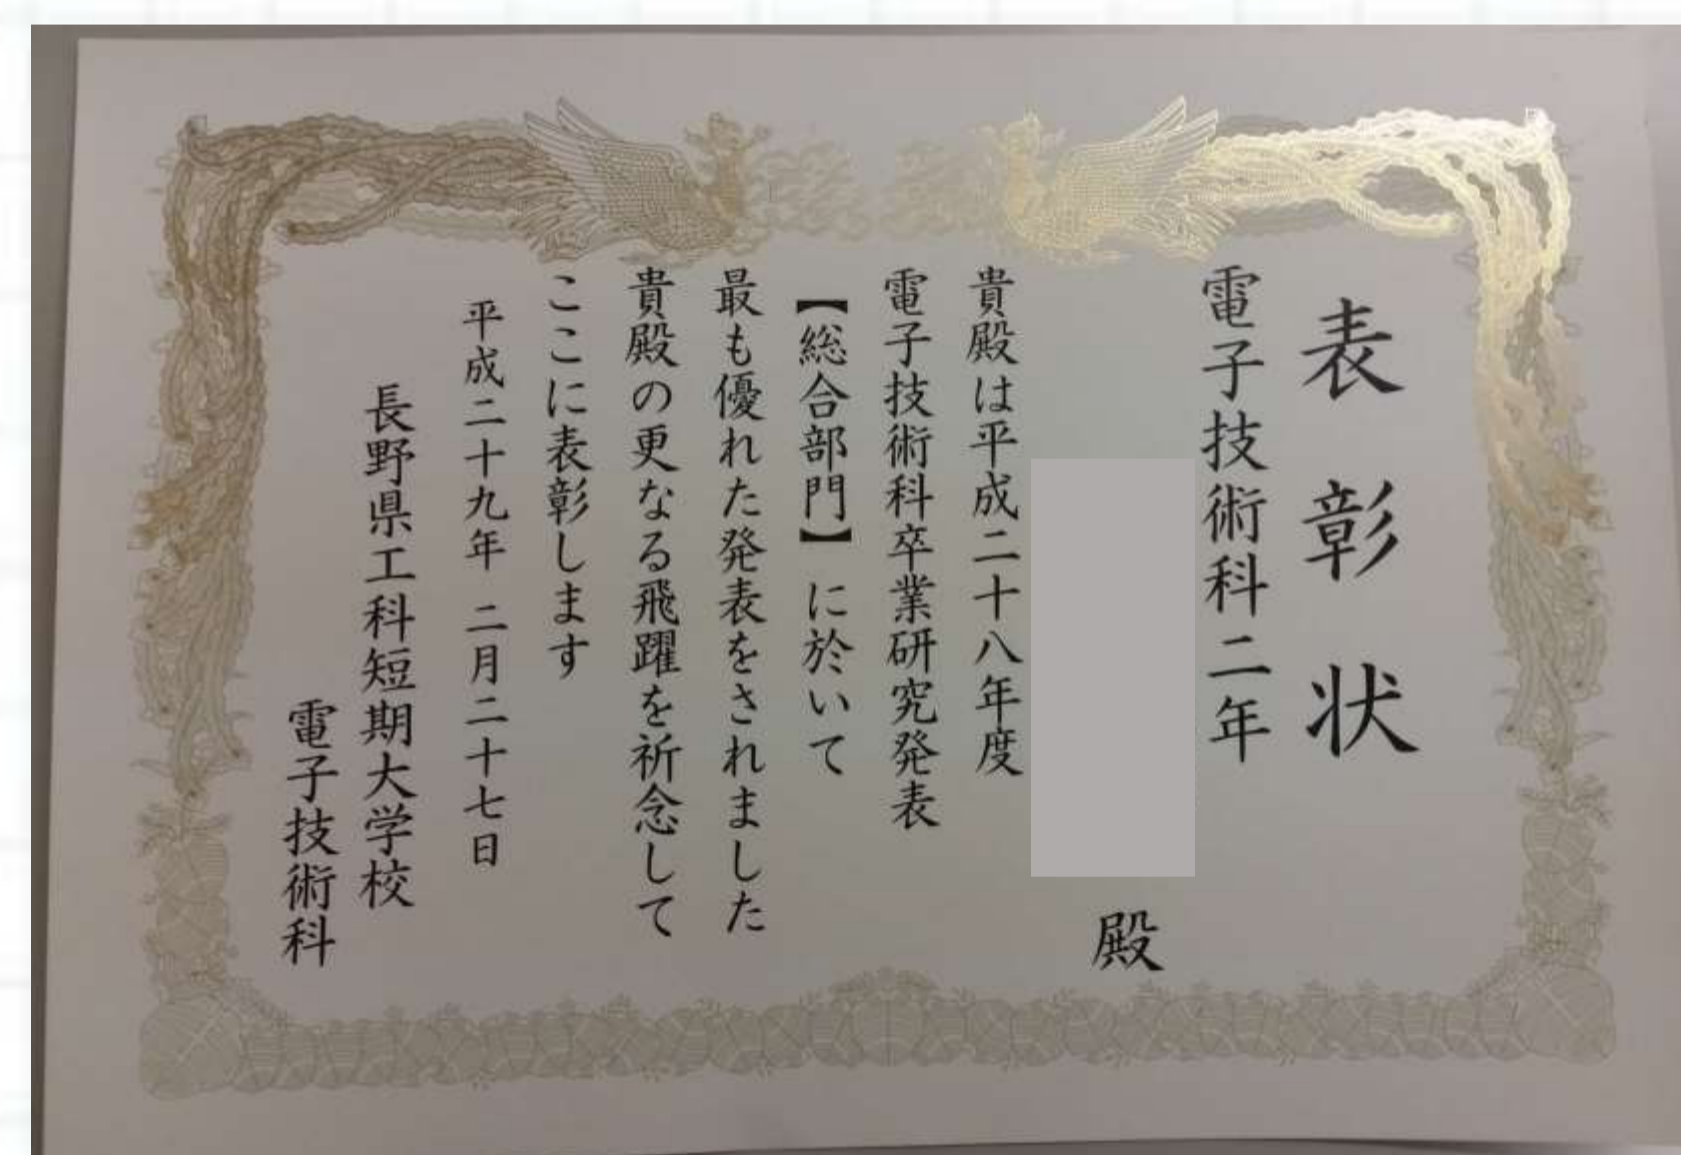 表彰状
電子技術科二年
殿
貴殿は平成二十八年度
電子技術科卒業研究発表
【総合部門】に於いて
最も優れた発表をされました
貴殿の更なる飛躍を祈念して
ここに表彰します
平成二十九年 二月二十七日
長野県工科短期大学校
電子技術科